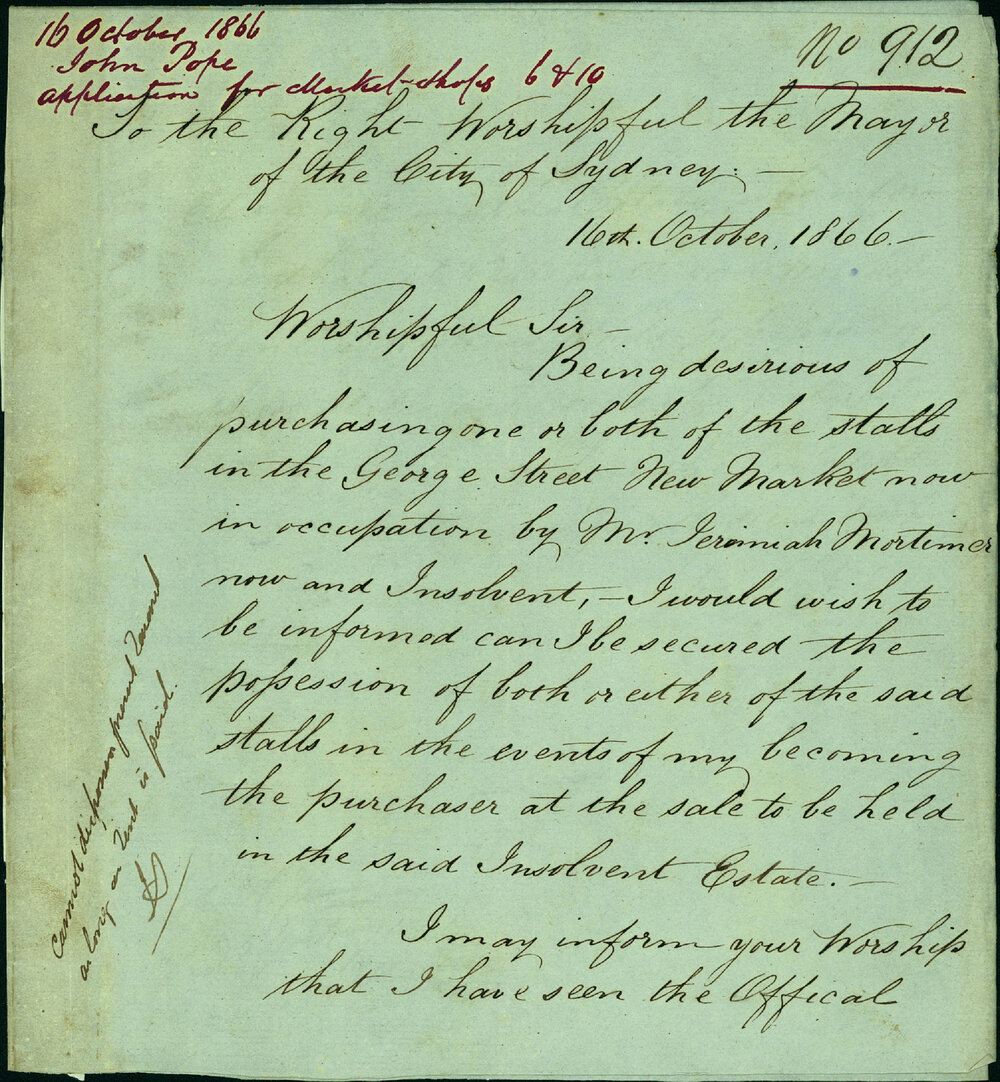 16 October 1866
John Pope
application for Market-Shops 6 & 10
No 912
To the Right Worshipful the Mayor
of the City of Sydney. —
16th. October, 1866. —
Worshipful Sir —
Being desirious of
purchasing one or both of the stalls
in the George Street New Market now
in occupation by Mr. Jeremiah Mortimer
now and Insolvent, — I would wish to
be informed can I be secured the
possession of both or either of the said
stalls in the events of my becoming
the purchaser at the sale to be held
in the said Insolvent Estate. —
I may inform your Worship
that I have seen the Offical
cannot dispossess present Tenant
as long as Rent is paid.